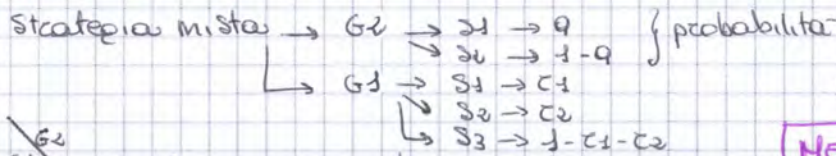 Strategia mista → G2 → s1 → q } probabilità
↘ s2 → 1-q
↳ G1 → S1 → r1
↘ S2 → r2
↳ S3 → 1-r1-r2
G2